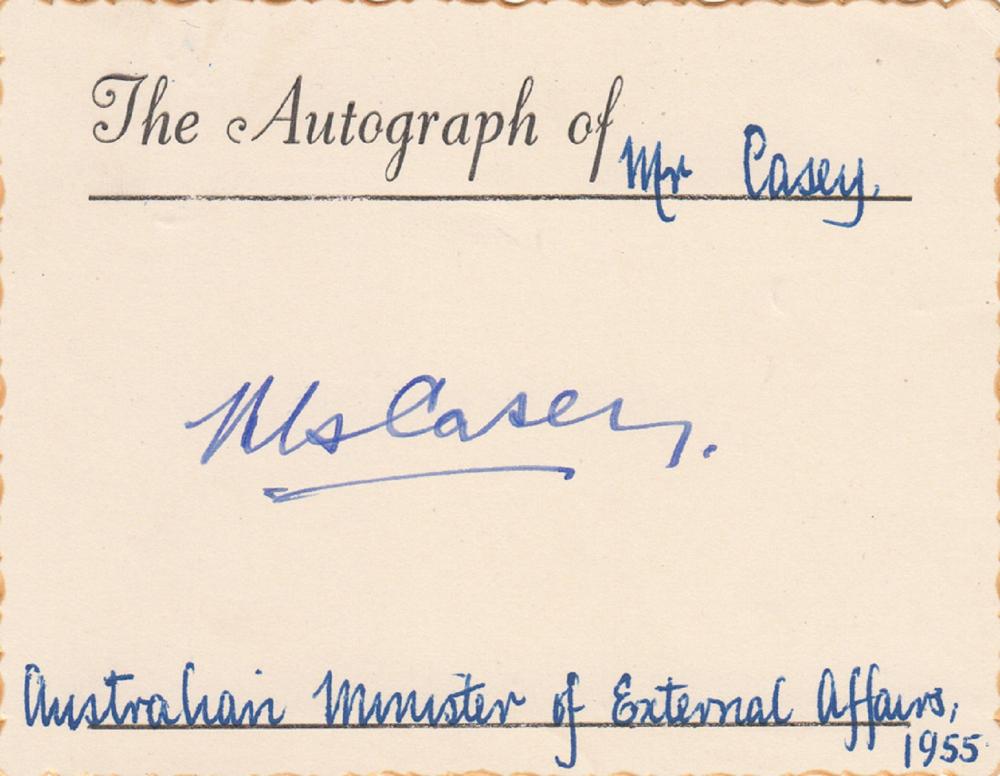 The Autograph of Mr Casey.
Casey.
Australian Minister of External Affairs,
1955